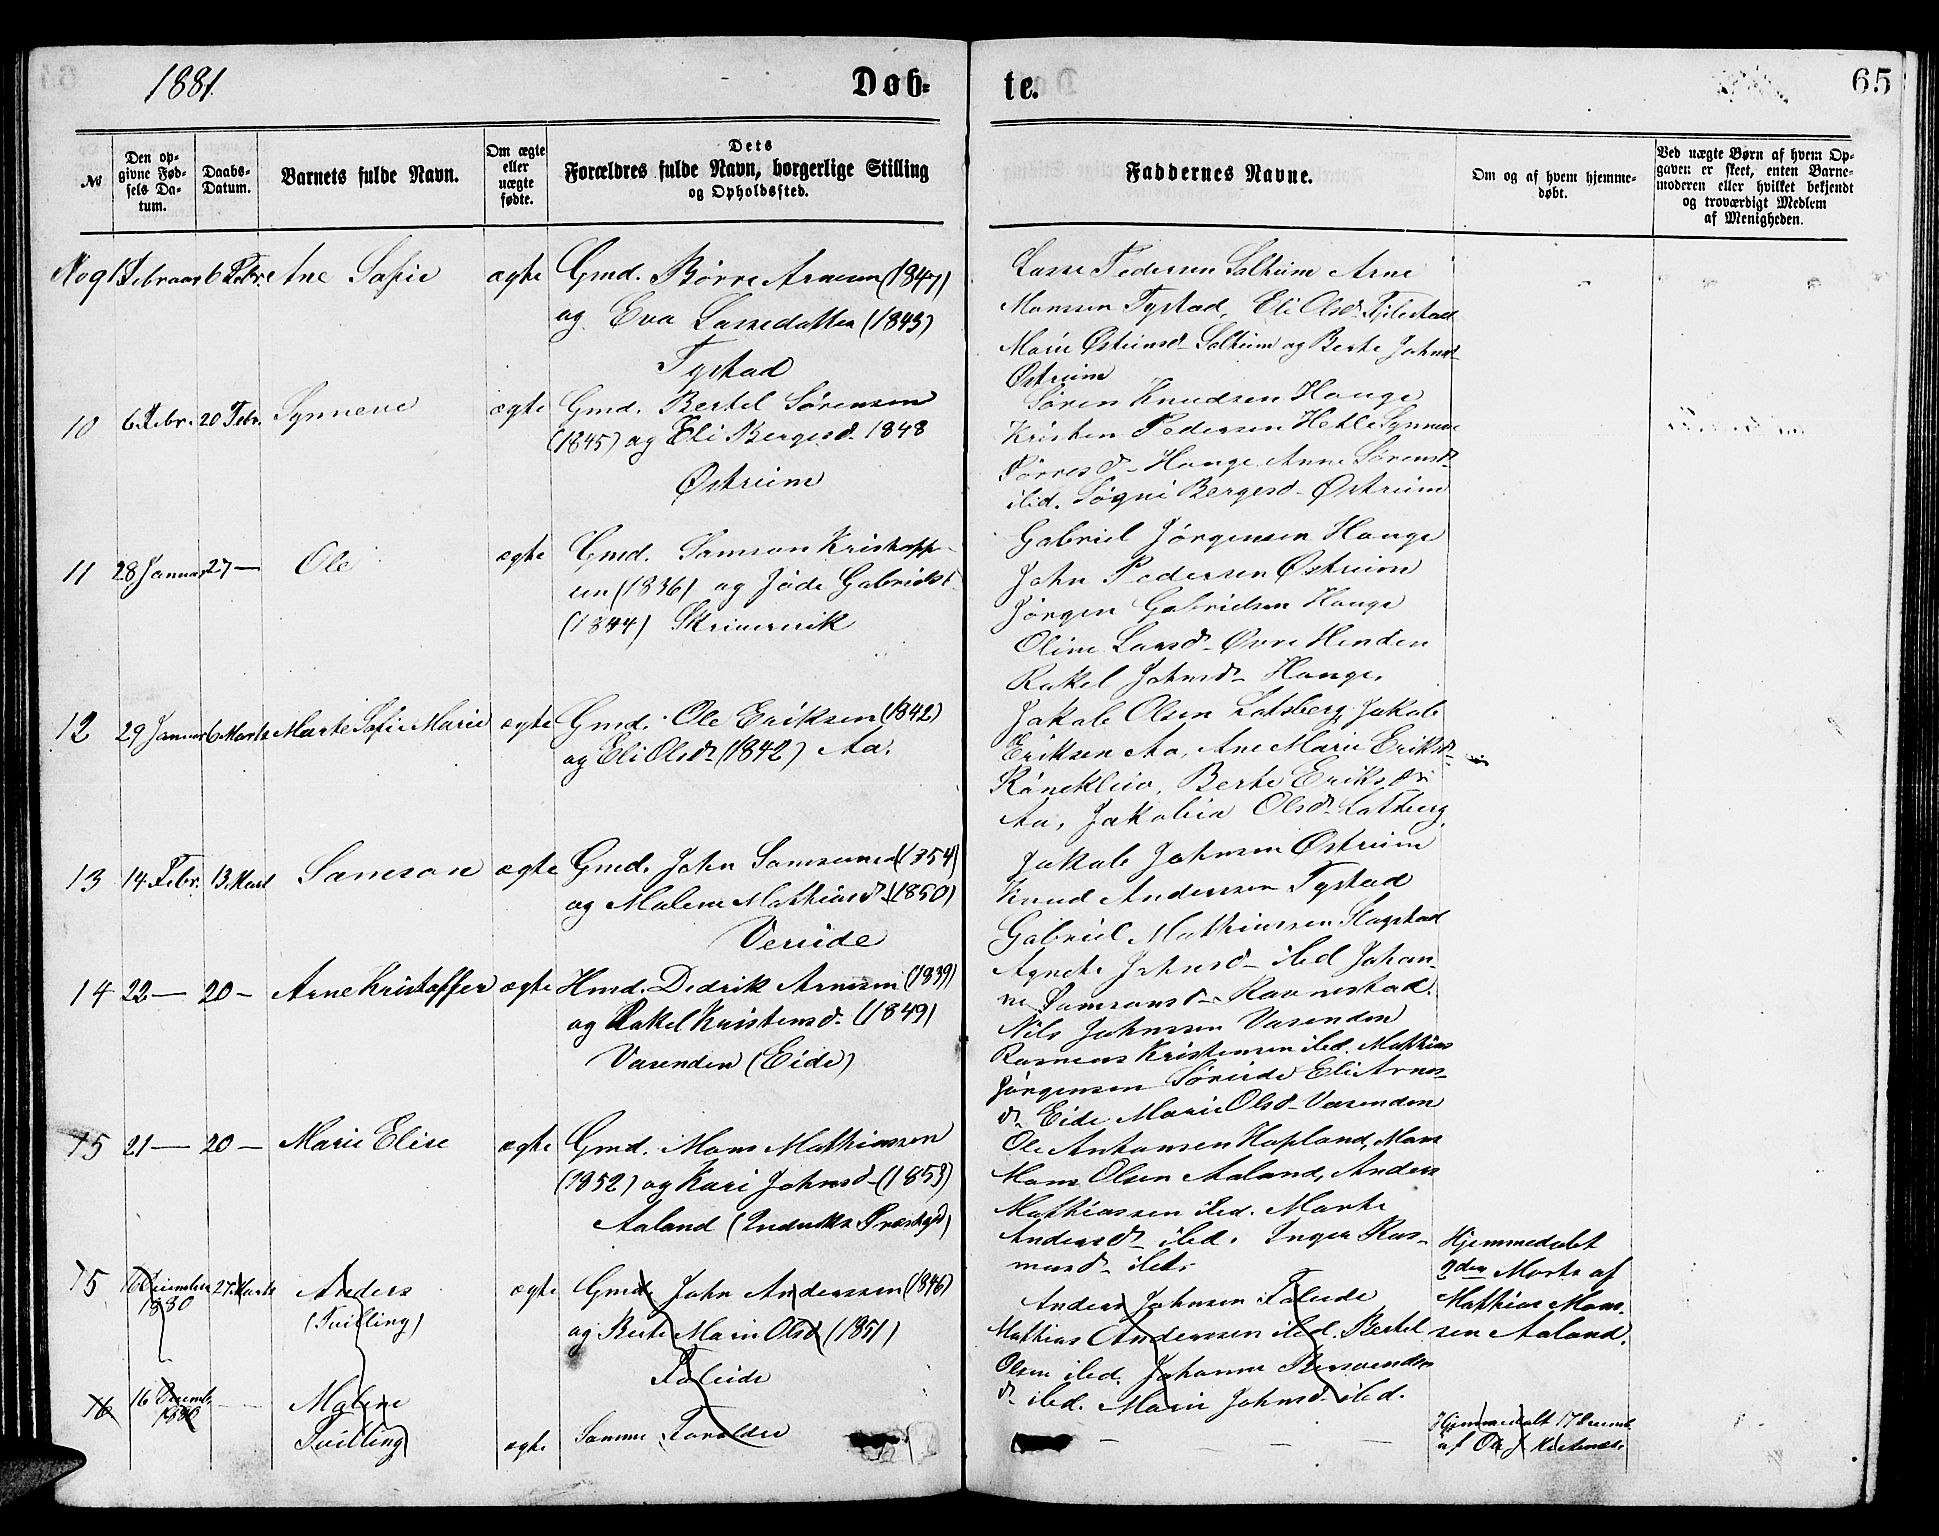 1881.
Døb-
te.
65
No
Den op-
givne Fød-
sels Da-
tum.
Daabs-
Datum.
Barnets fulde Navn.
Om ægte
eller
uægte
fødte.
Dets
Forældres fulde Navn, borgerlige Stilling
og Opholdssted.
Faddernes Navne.
Om og af hvem hjemme-
døbt.
Ved uægte Børn af hvem Op-
gaven er skeet, enten Barne-
moderen eller hvilket bekjendt
og troværdigt Medlem
af Menigheden.
No 9 1 Februar 6 Febr. Ane Sofie ægte Gmd. Børre Arnesen (1847)
og Eva Lassedatter (1843)
Tystad
Lasse Pedersen Solheim Arne
Monsen Tystad, Eli Olsd. Fjelestad
Marie Østeinsd Solheim og Berte Johnsd
Østreim
10 6 Febr. 20 Febr. Synneve ægte Gmd. Bertel Sørensen
(1845) og Eli Bergesd. 1848
Østreim
Søren Knudsen Hauge
Kristen Pedersen Hetle Synneve
Hauge Anne Sørensd
ibid. Søgni Bergesd Østreim
11 28 Januar 27 — Ole ægte Gmd. Samson Kristoff-
sen (1836) og Jøde Gabrielsd.
(1844)
Gabriel Jørgensen Hauge
John Pedersen Østreim
Jørgen Gabrielsen Hauge
Oline Larsd Øvre Henden
Rakel Johnsd Hauge.
12 29 Januar 6 Marts Marte Sofie Marie ægte Gmd. Ole Eriksen (1842)
og Eli Olsd (1842) Aa.
Jakob Olsen Lotsberg, Jakob
Eriksen Aa, Ane Marie Eriksd
Rønekleiv, Berte Eriksd
Aa, Jakobia Olsd Lotsberg
13 14 Febr. 13 Mart Samson ægte Gmd. John Samsonsen (1854)
og Malene Mathiasd (1850)
Vereide
Jakob Johnsen Østreim
Knud Anderssen Tystad
Gabriel Mathiassen Slagstad
Agnete Johnsd ibid Johan-
ne Samsonsd Ravnestad.
14 22 — 20 — Arne Kristoffer ægte Hmd. Dedrik Arnesen (1839)
og Rakel Kristensd. (1849)
Vasenden (Eide)
Nils Johnssen Vasenden
Rasmus Kristensen ibid. Mathias
Jørgensen Søreide Eli Arnes-
d. Eide Marie Olsd Vasenden
15 21 — 20 — Marie Elise ægte Gmd. Mons Mathiassen
(1852) og Kari Johnsd (1853)
Aaland (Indviks Præstegjd)
Ole Antonsen Hopland, Mons
Mons Olsen Aaland, Anders
Mathiassen ibid. Marte
Andersd ibid. Inger Ras-
musd ibid.
Hjemmedøbt
2den Marts af
Mathias Mons-
sen Aaland.
15 16 December
1880
27 Marts Anders
(Tvilling)
ægte Gmd. John Anderssen (1846)
og Berte Marie Olsd (1851)
Faleide
Anders Johnsen Faleide
Mathias Anderssen ibid. Bertel
Olsen ibid. Johanne
d ibid. Marie Johnsd. ibid.
16 16 Decemb.
1880
Malene
Tvilling
ægte Samme Forældre
Hjemmedøbt 17 Decemb.
af Ole J.